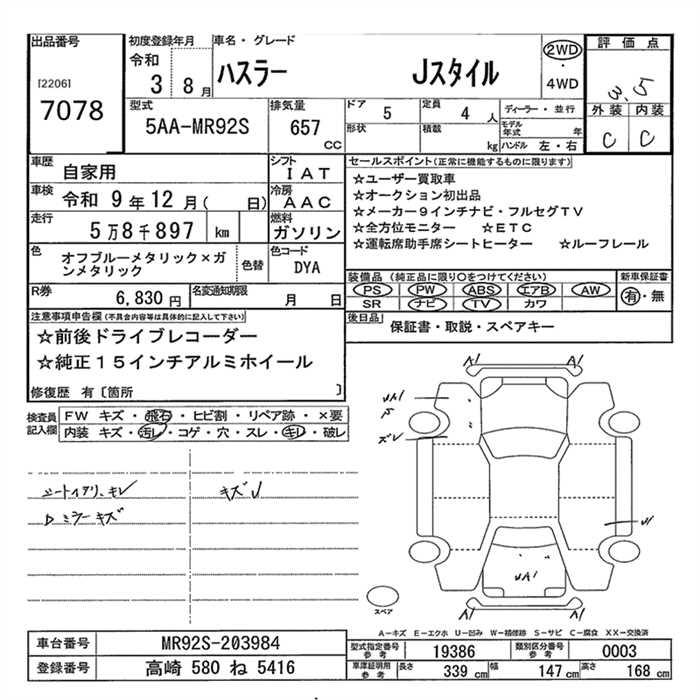 出品番号
[2206]
7078
初度登録年月
令和
3 8月
車名・グレード
ハスラー Jスタイル
2WD
・
4WD
評価点
3.5
外装 内装
C C
型式
5AA-MR92S
排気量
657
CC
ドア 5
定員 4 人
形状
積載 kg
ディーラー・並行
モデル年式 年
ハンドル 左・右
車歴 自家用
シフト IAT
車検 令和 9年12月( 日)
冷房 AAC
走行 5万8千897 km
燃料 ガソリン
色 オフブルーメタリック×ガンメタリック
色替
色コード DYA
R券 6,830円
名変通知期限 月 日
セールスポイント(正常に機能するものに限ります)
☆ユーザー買取車
☆オークション初出品
☆メーカー9インチナビ・フルセグTV
☆全方位モニター ☆ETC
☆運転席助手席シートヒーター ☆ルーフレール
装備品 (純正品に限り○をつけてください)
PS PW ABS エアB AW
SR ナビ TV カワ
新車保証書
有・無
後日品 保証書・取説・スペアキー
注意事項申告欄(不具合内容等は具体的に記入して下さい)
☆前後ドライブレコーダー
☆純正15インチアルミホイール
修復歴 有〔箇所 〕
検査員記入欄
FW キズ・飛石・ヒビ割・リペア跡・×要
内装 キズ・汚レ・コゲ・穴・スレ・キレ・破レ
キズU
ミラーキズ
A1 A1
UA1
ズレ
U1
UA1
A1 A1
スペア
A-キズ E-エクボ U-凹み W-補修跡 S-サビ C-腐食 XX-交換済
車台番号 MR92S-203984
登録番号 高崎 580 ね 5416
型式指定番号 参考 19386
類別区分番号 参考 0003
車庫証明用 参考 長さ 339 cm 幅 147 cm 高さ 168 cm